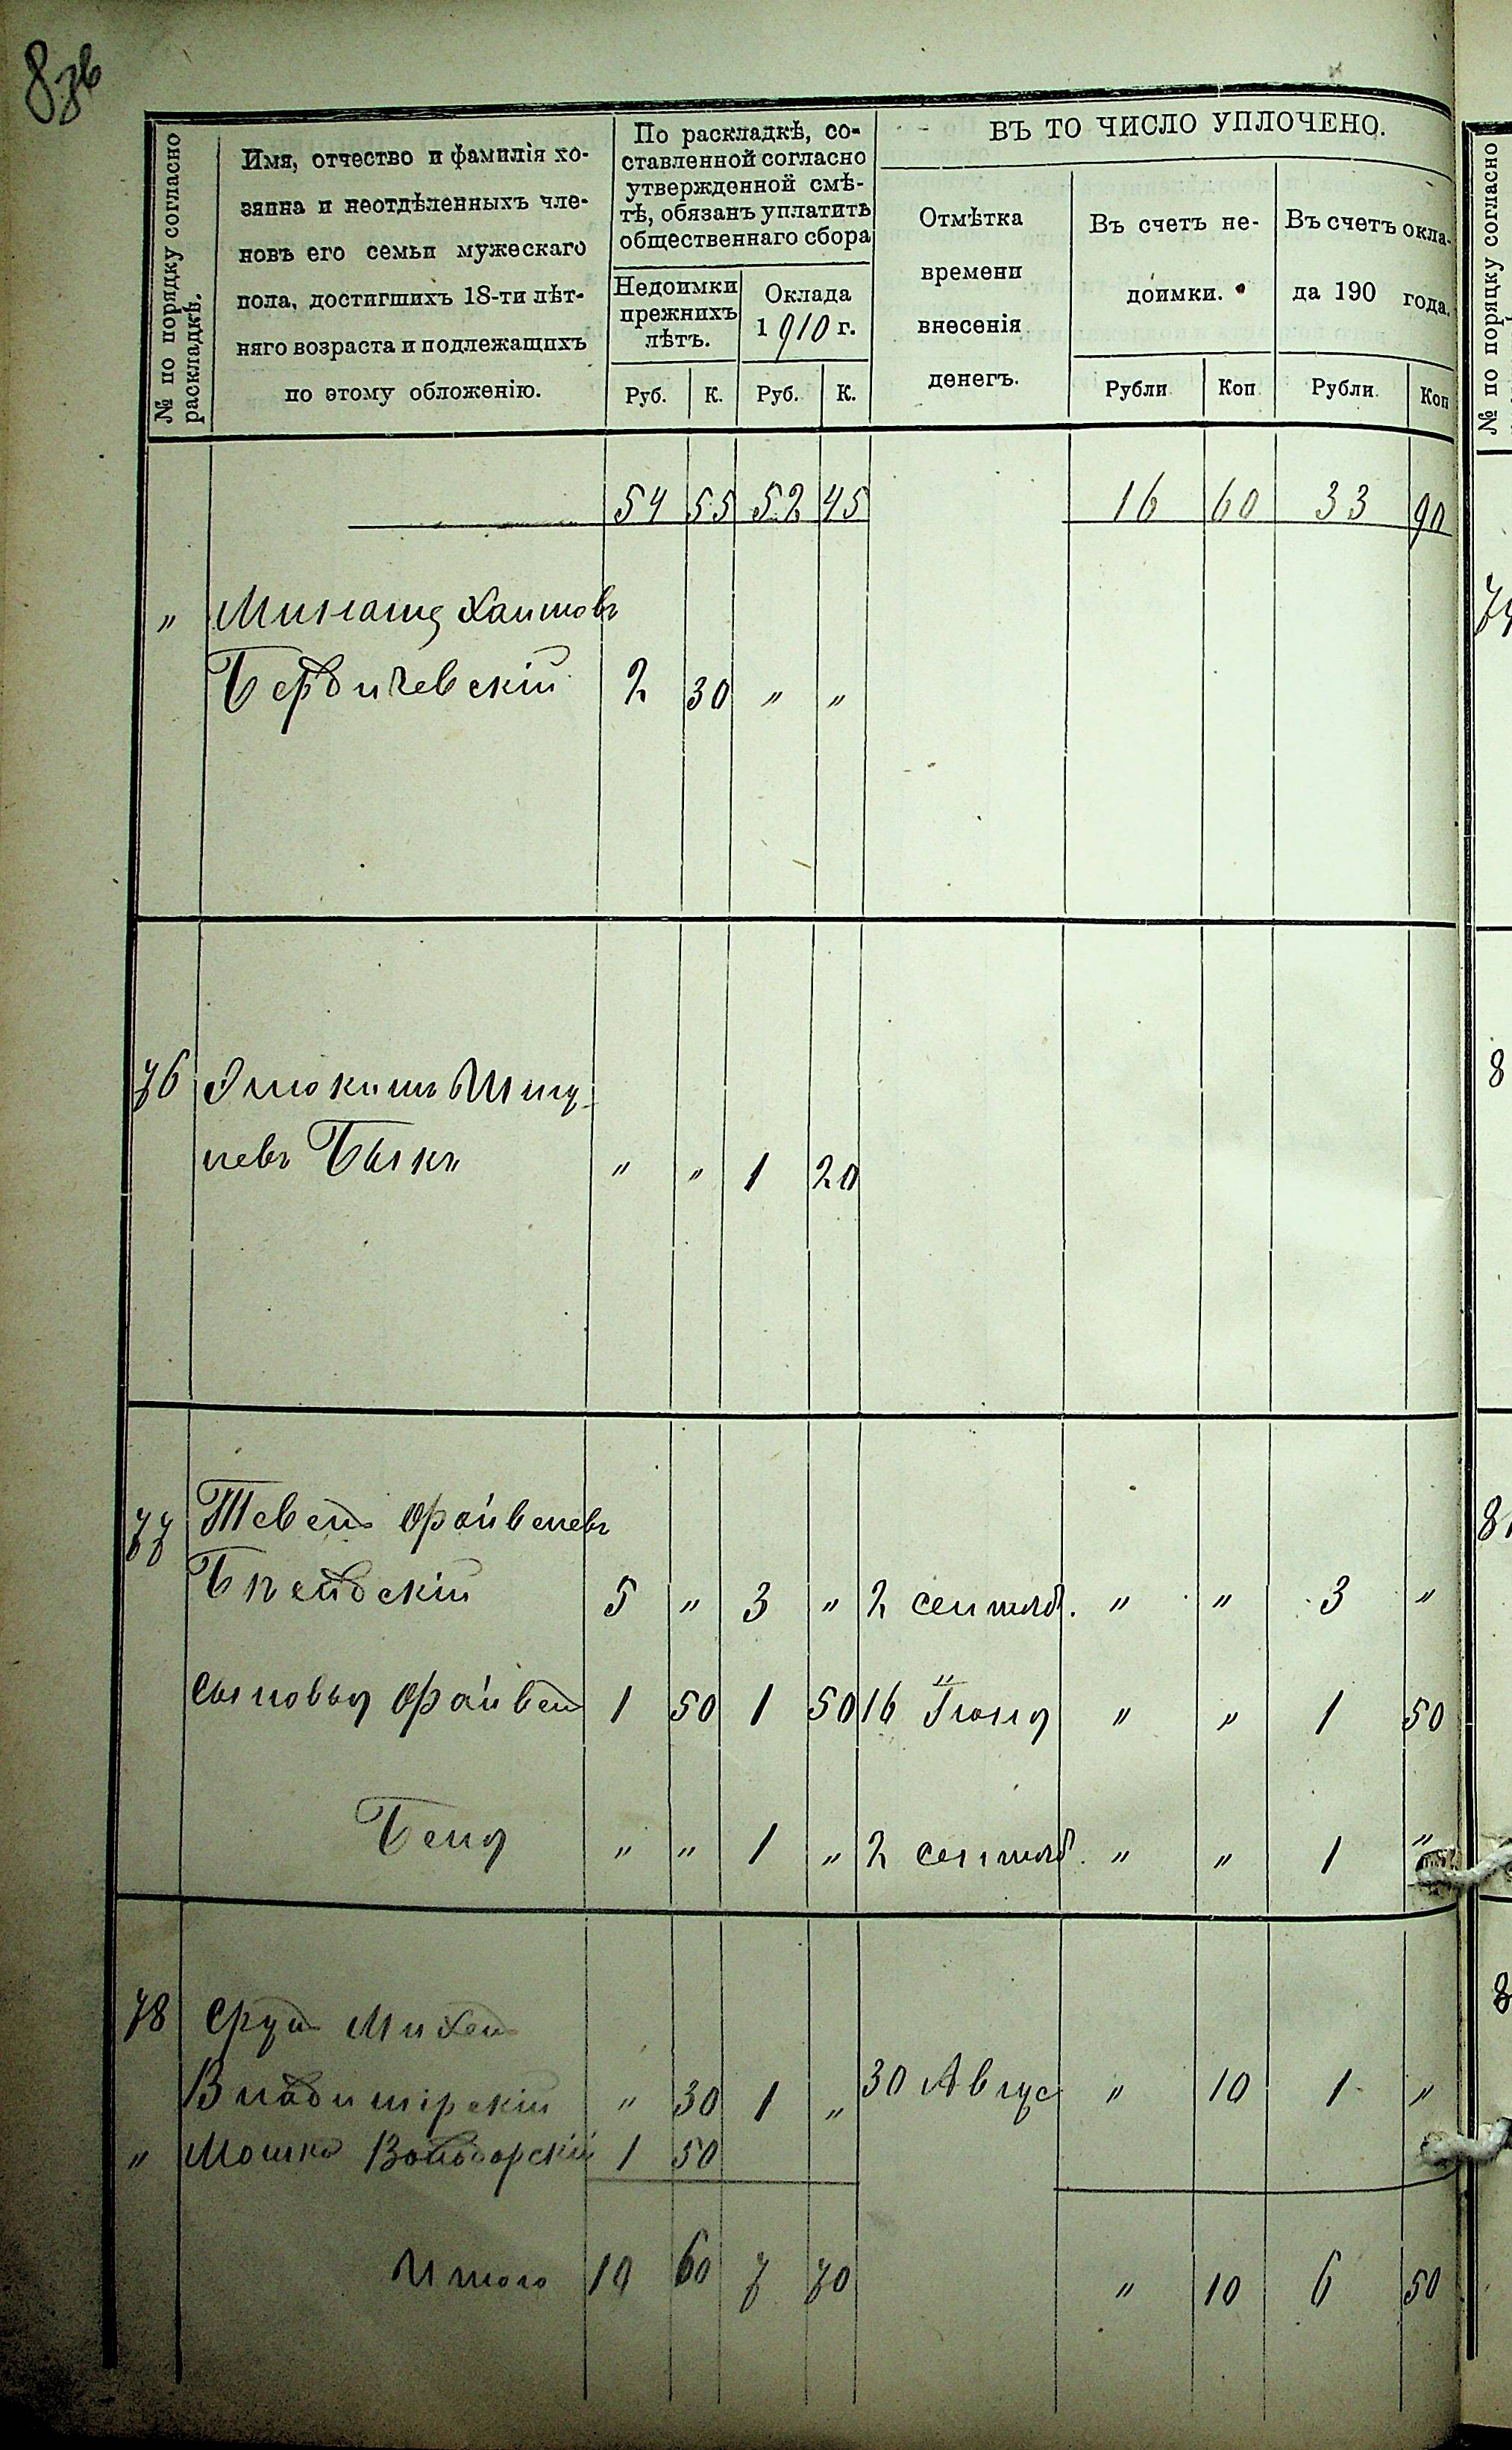 8 зв
№ по порядку согласно раскладкѣ.
Имя, отчество и фамилія хо-
зяина и неотдѣленныхъ чле-
новъ его семьи мужескаго
пола, достигшихъ 18-ти лѣт-
няго возраста и подлежащихъ
по этому обложенію.
По раскладкѣ, со-
ставленной согласно
утвержденной смѣ-
тѣ, обязанъ уплатить
общественнаго сбора
Недоимки
прежнихъ
лѣтъ.
Оклада
1910 г.
Руб. К. Руб. К.
ВЪ ТО ЧИСЛО УПЛОЧЕНО.
Отмѣтка
времени
внесенія
денегъ.
Въ счетъ не-
доимки.
Въ счетъ окла-
да 190 года.
Рубли Коп Рубли Коп
54 55 52 45 16 60 33 90
" Хаимовъ
Бердичевскій 2 30 " "
76
Быкъ " " 1 20
77 Тевель Файвелевъ
5 " 3 " 2 сентяб. " " 3 "
Сыновья Файвель 1 50 1 50 16 Іюня " " 1 50
Беня " " 1 " 2 сентяб. " " 1 "
78 Сруль Михель
Владимірскій " 30 1 " 30 Авгус " 10 1 "
" Мошко 1 50
Итого 10 60 7 70 " 10 6 50
№ по порядку согласно